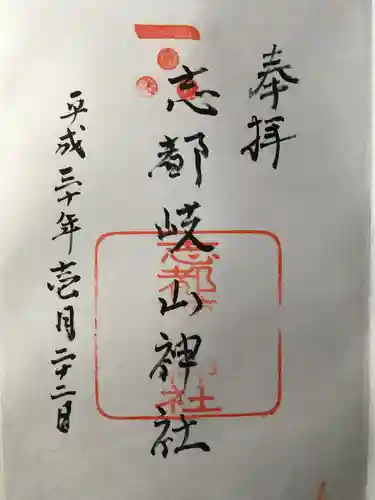 奉拝
志都岐山神社
平成三十年壱月二十二日
志都
社